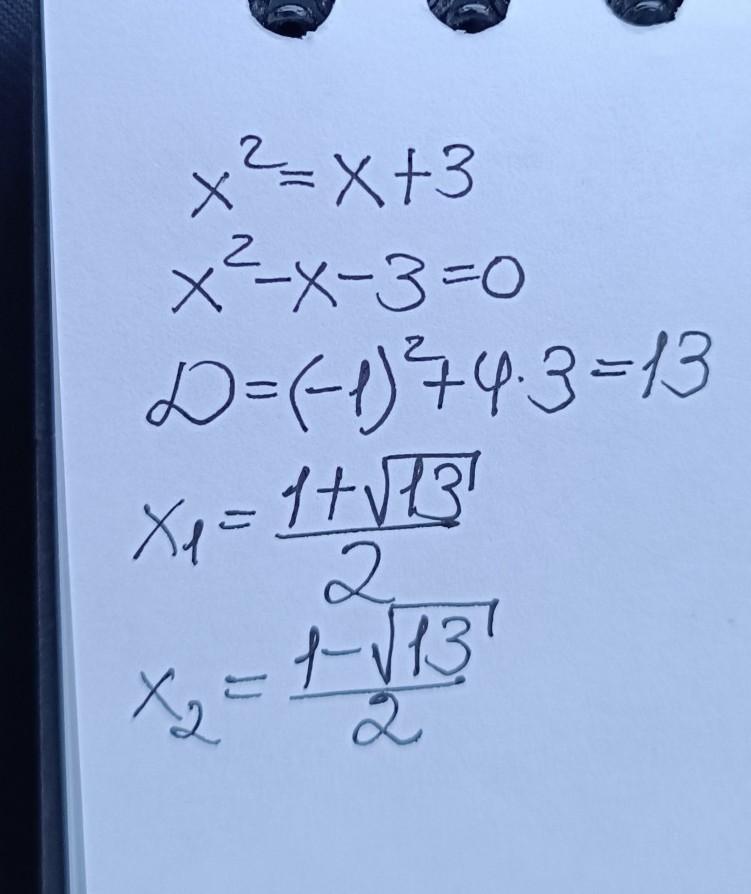 x² = x + 3
x² - x - 3 = 0
D = (-1)² + 4·3 = 13
x₁ = (1+√13)/2
x₂ = (1-√13)/2